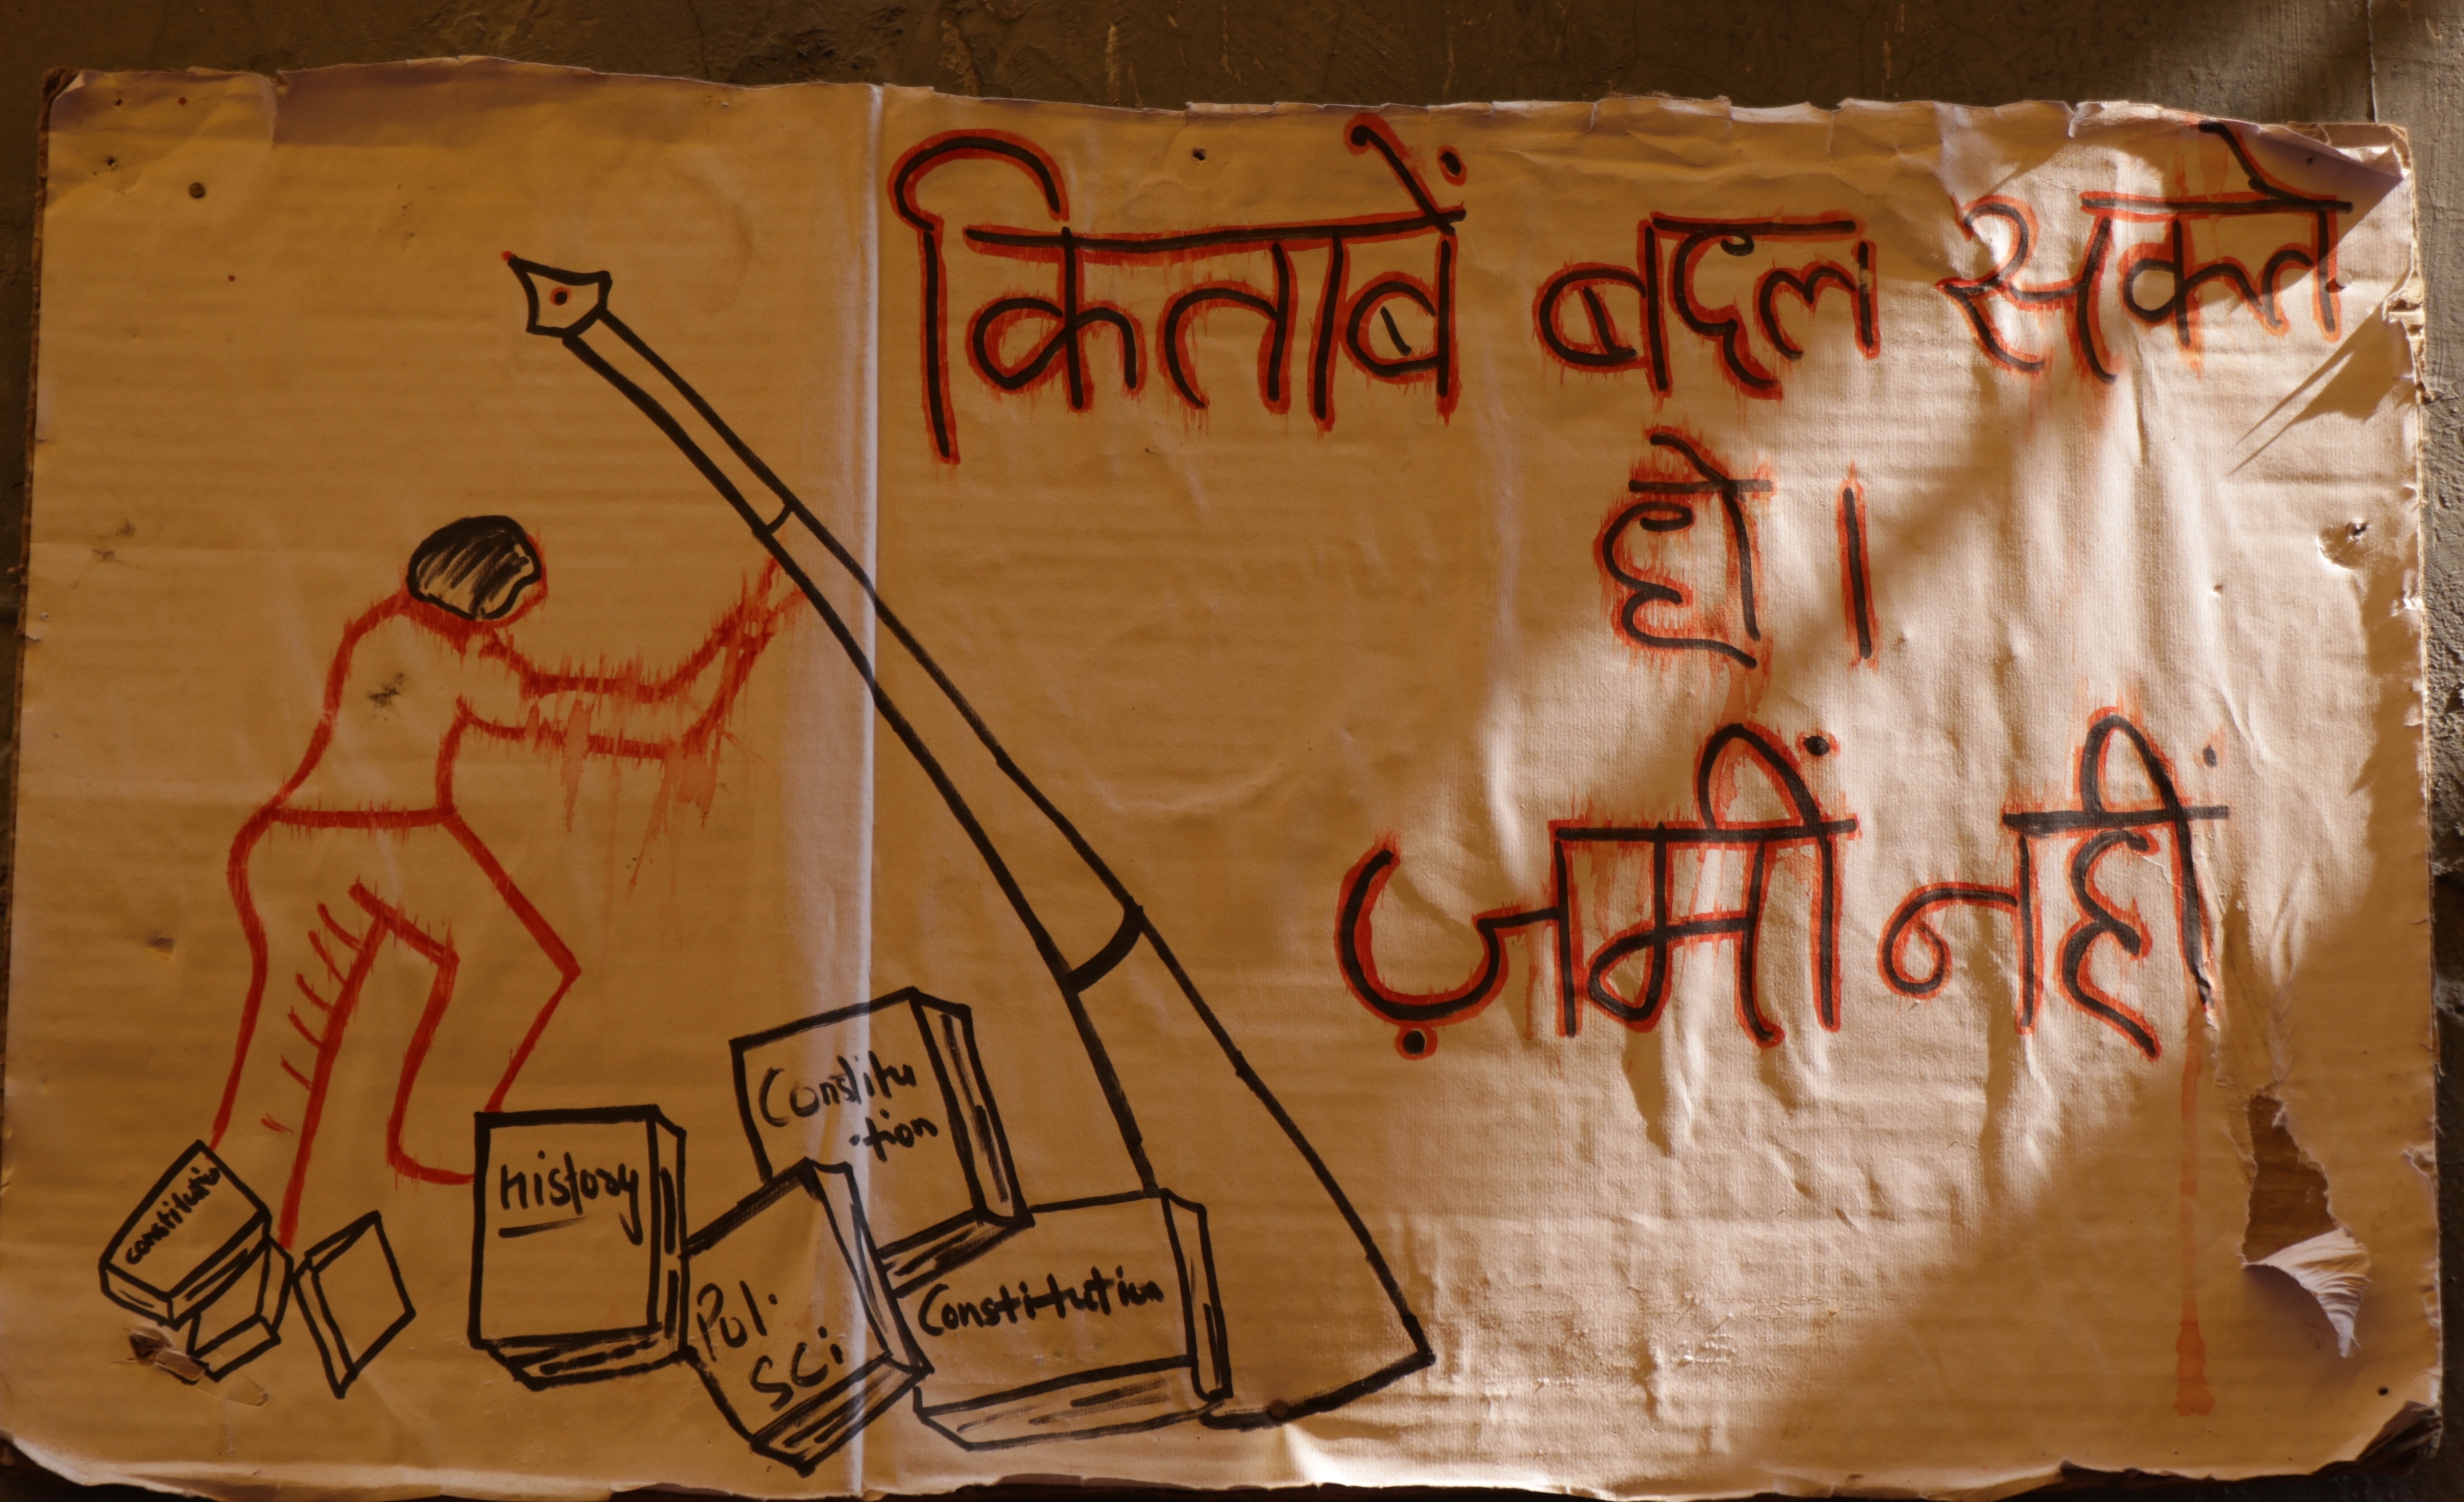 किताबें बदल सकते
हो।
ज़मीं नहीं
Constitu
-tion
History
Constitution
Pol.
Sci
Constitution